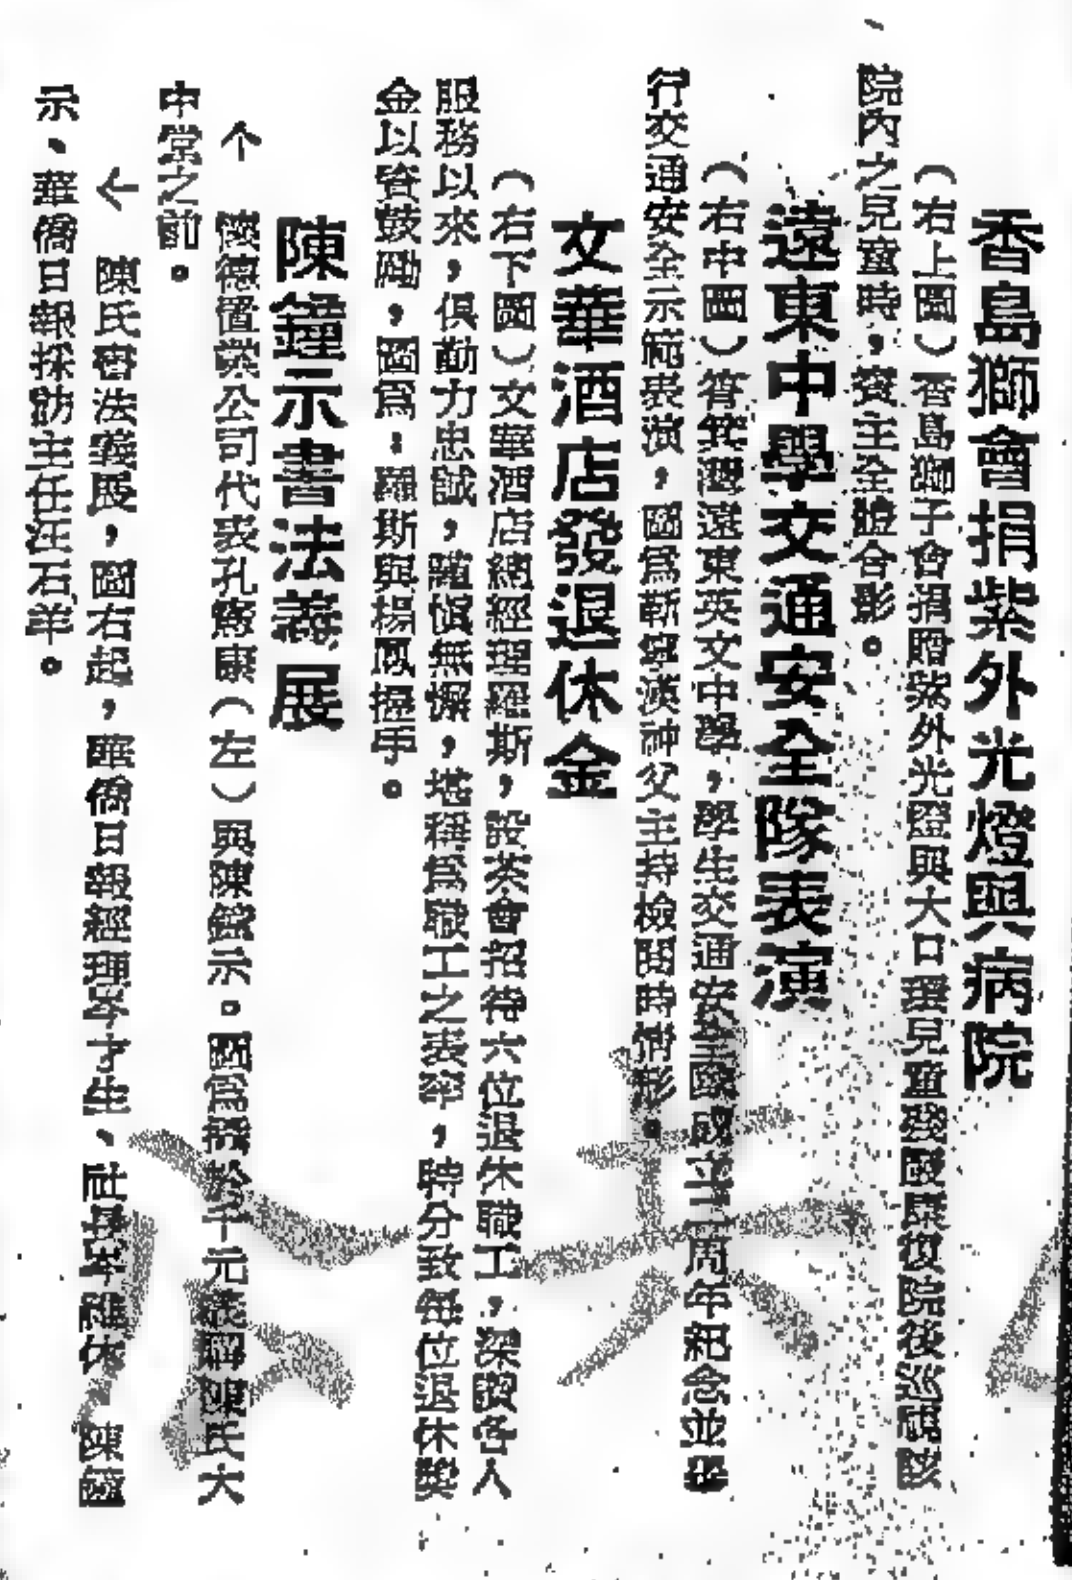 香島獅會捐紫外光燈與病院
（右上圖）香島獅子會捐贈紫外光燈與大口環兒童殘廢康復院後巡視該
院內之兒童時，賓主全體合影。
遠東中學交通安全隊表演
（右中圖）筲箕灣遠東英文中學，學生交通安全隊成立一周年紀念並舉
行交通安全示範表演，圖為靳寧漢神父主持檢閱時情形。
文華酒店發退休金
（右下圖）文華酒店總經理羅斯，設茶會招待六位退休職工，深贊各人
服務以來，俱勤力忠誠，謹慎無懈，堪稱為職工之表率，特分致每位退休獎
金以資鼓勵，圖為：羅斯與楊鳳握手。
陳鐘示書法義展
↑ 德置業公司代表孔憲康（左）與陳鐘示。圖為千元義購陳氏大
中堂之前。
← 陳氏書法義展，圖右起，華僑日報經理岑才生、社長岑維休、陳鐘
示、華僑日報採訪主任汪石羊。